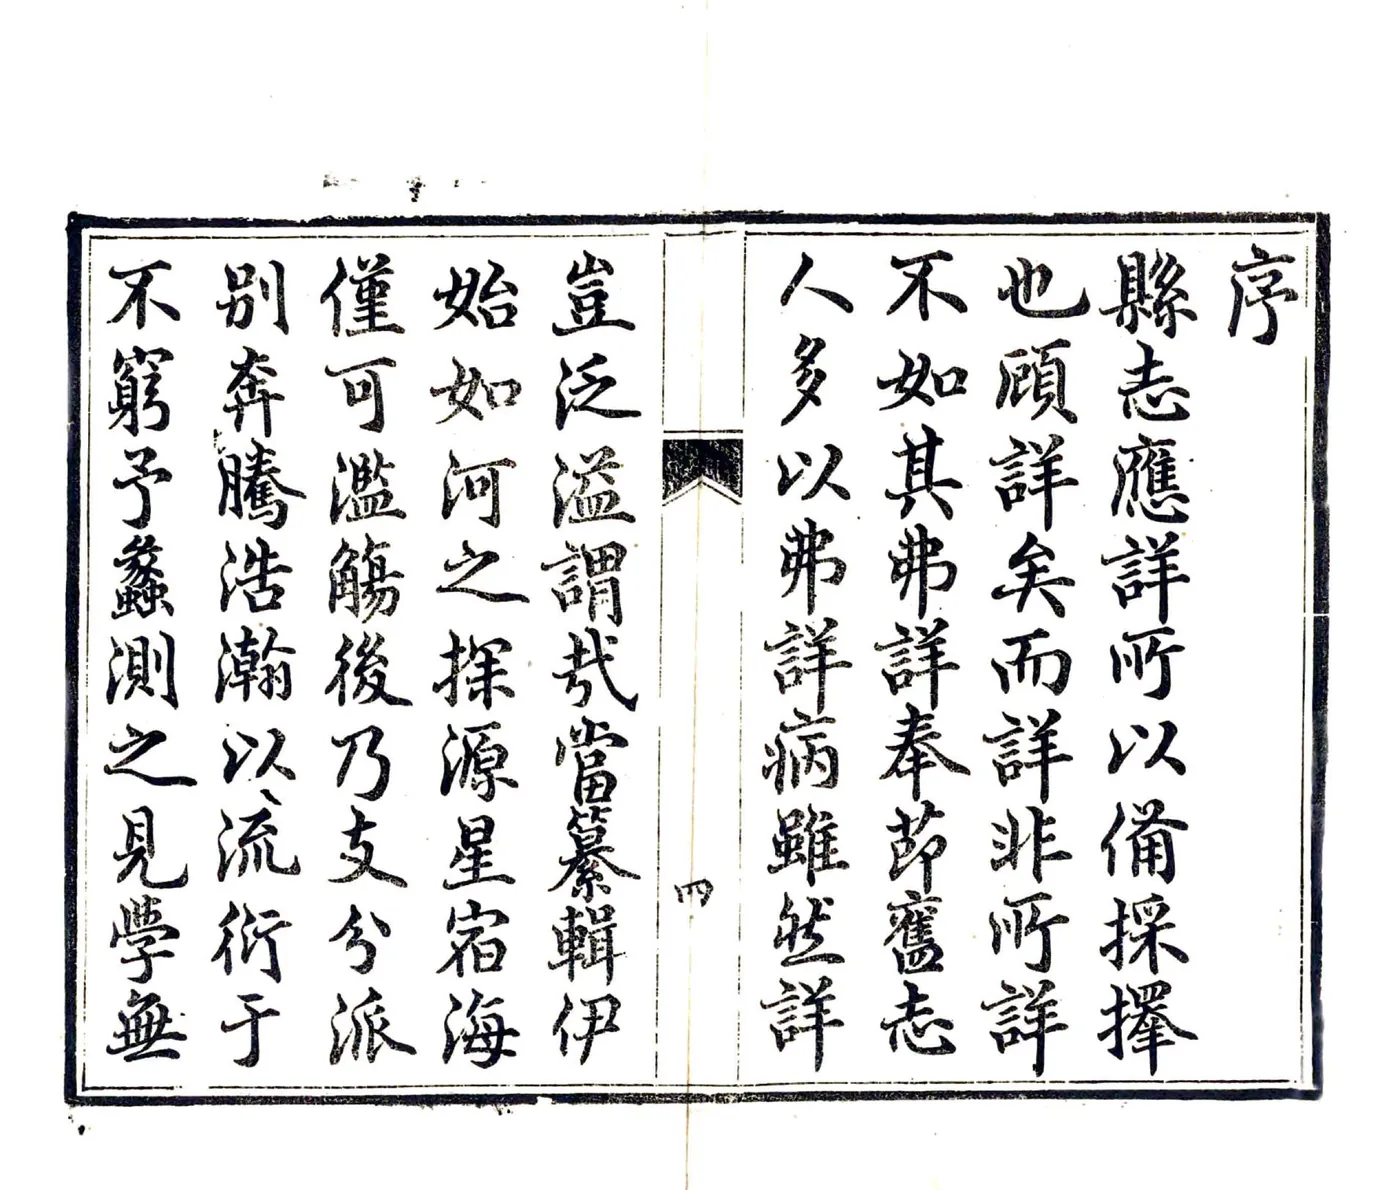 序
縣志應詳所以備採擇
也顧詳矣而詳非所詳
不如其弗詳奉節舊志
人多以弗詳病雖然詳
四
豈泛溢謂哉當纂輯伊
始如河之探源星宿海
僅可濫觴後乃支分派
别奔騰浩瀚以流衍于
不窮予蠡測之見學無